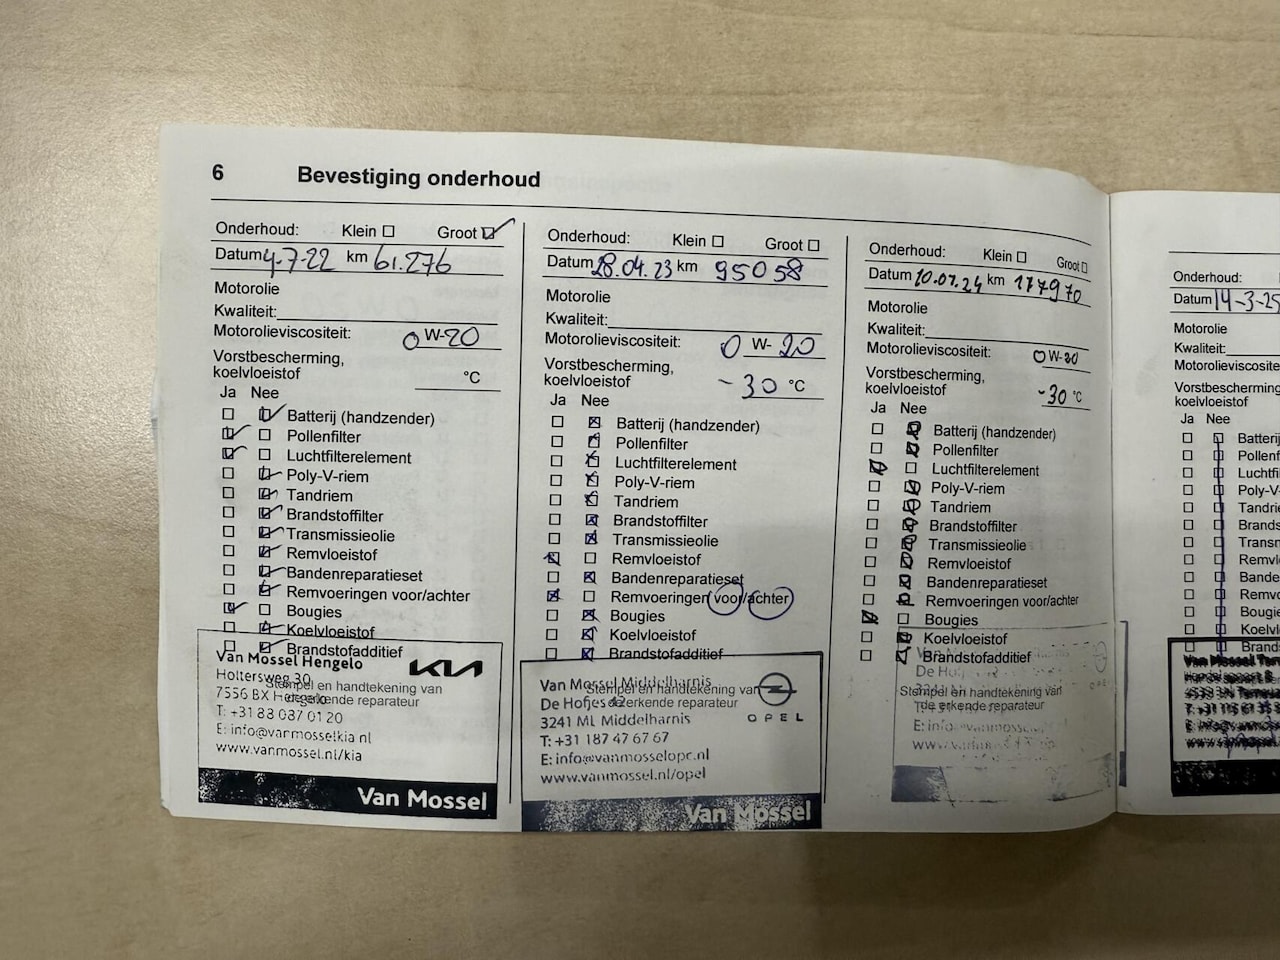 6 Bevestiging onderhoud
Onderhoud: Klein Groot
Datum 4-7-22 km 61.276
Motorolie
Kwaliteit:
Motorolieviscositeit: 0 W-20
Vorstbescherming,
koelvloeistof °C
Ja Nee
Batterij (handzender)
Pollenfilter
Luchtfilterelement
Poly-V-riem
Tandriem
Brandstoffilter
Transmissieolie
Remvloeistof
Bandenreparatieset
Remvoeringen voor/achter
Bougies
Koelvloeistof
Brandstofadditief
Van Mossel Hengelo
KIA
Holtersweg 30
Stempel en handtekening van
7556 BX Hengelo
de erkende reparateur
T: +31 88 087 01 20
E: info@vanmosselkia.nl
www.vanmossel.nl/kia
Van Mossel
Onderhoud: Klein Groot
Datum 28.04.23 km 95058
Motorolie
Kwaliteit:
Motorolieviscositeit: 0 W- 20
Vorstbescherming,
koelvloeistof -30 °C
Ja Nee
Batterij (handzender)
Pollenfilter
Luchtfilterelement
Poly-V-riem
Tandriem
Brandstoffilter
Transmissieolie
Remvloeistof
Bandenreparatieset
Remvoeringen voor/achter
Bougies
Koelvloeistof
Brandstofadditief
Van Mossel Middelharnis
Stempel en handtekening van
De Hofjes 42
de erkende reparateur
OPEL
3241 ML Middelharnis
T: +31 187 47 67 67
E: info@vanmosselopel.nl
www.vanmossel.nl/opel
Van Mossel
Onderhoud: Klein Groot
Datum 10.07.24 km 117970
Motorolie
Kwaliteit:
Motorolieviscositeit: 0 W-20
Vorstbescherming,
koelvloeistof -30 °C
Ja Nee
Batterij (handzender)
Pollenfilter
Luchtfilterelement
Poly-V-riem
Tandriem
Brandstoffilter
Transmissieolie
Remvloeistof
Bandenreparatieset
Remvoeringen voor/achter
Bougies
Koelvloeistof
Brandstofadditief
Stempel en handtekening van
de erkende reparateur
Onderhoud:
Datum 14-3-25
Motorolie
Kwaliteit:
Motorolieviscosite
Vorstbescherming
koelvloeistof
Ja Nee
Batteri
Pollenf
Luchtfi
Poly-V
Tandri
Brands
Transm
Remvlo
Bande
Remvo
Bougie
Koelvl
Brands
Van Mossel